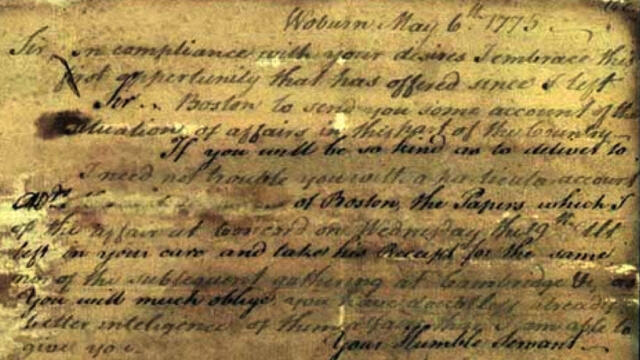 Woburn May 6th. 1775
Sir in compliance with your desires I embrace this
first opportunity that has offered since I left
Sir.. Boston to send you some account of the
situation of affairs in this part of the Country
If you will be so kind as to deliver to
I need not trouble you with a particular account
of Boston, the Papers which I
of the affair at Concord on Wednesday the 19th Ult
left in your care and take his Receipt for the same
nor of the subsequent gathering at Cambridge &c as
You will much oblige, you have doubtless already
better inteligence of them than I am able to
give you Your Humble Servant